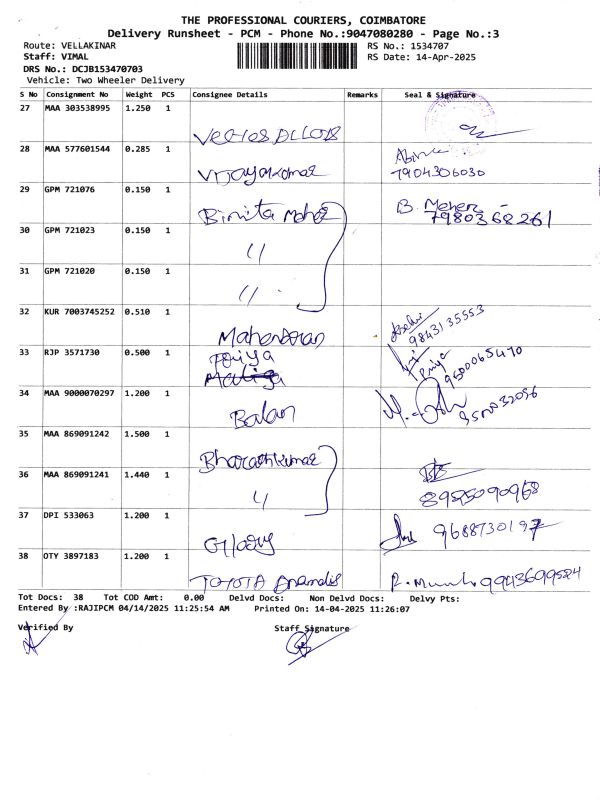 THE PROFESSIONAL COURIERS, COIMBATORE
Delivery Runsheet - PCM - Phone No.:9047080280 - Page No.:3
Route: VELLAKINAR RS No.: 1534707
Staff: VIMAL RS Date: 14-Apr-2025
DRS No.: DCJB153470703
Vehicle: Two Wheeler Delivery
S No Consignment No Weight PCS Consignee Details Remarks Seal & Signature
27 MAA 303538995 1.250 1
28 MAA 577601544 0.285 1
Vijayakumar 7904306030
29 GPM 721076 0.150 1
Binita Meher B. Meher
7980368261
30 GPM 721023 0.150 1
"
31 GPM 721020 0.150 1
"
32 KUR 7003745252 0.510 1
Mahendran 9843135553
33 RJP 3571730 0.500 1
Priya Priya
9500065470
34 MAA 9000070297 1.200 1
Balan
35 MAA 869091242 1.500 1
Bharathkumar
36 MAA 869091241 1.440 1
" 8985090968
37 DPI 533063 1.200 1
9688730197
38 OTY 3897183 1.200 1
TOYOTA 9943699584
Tot Docs: 38 Tot COD Amt: 0.00 Delvd Docs: Non Delvd Docs: Delvy Pts:
Entered By :RAJIPCM 04/14/2025 11:25:54 AM Printed On: 14-04-2025 11:26:07
Verified By Staff Signature